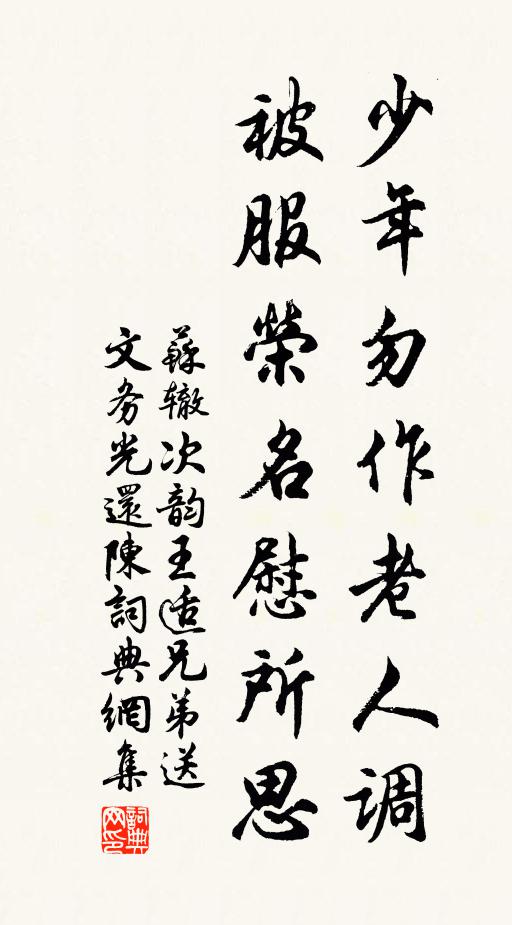 少年勿作老人调
被服榮名慰所思
蘇辙次韵王适兄弟送
文务光還陳詞典網集
詞典网印